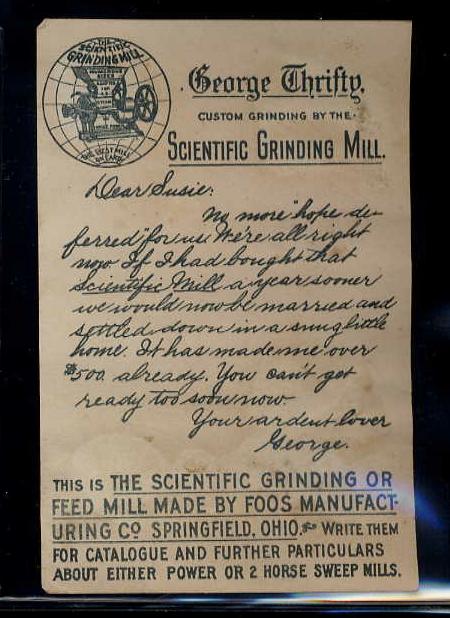 THE
SCIENTIFIC
GRINDING MILL.
THE BEST MILL
ON EARTH
George Thrifty,
CUSTOM GRINDING BY THE
SCIENTIFIC GRINDING MILL.
Dear Susie:
No more "hope de-
ferred" for us. We're all right
now. If I had bought that
Scientific Mill a year sooner
we would now be married and
settled down in a snug little
home. It has made me over
$500. already. You can't get
ready too soon now.
Your ardent lover
George.
THIS IS THE SCIENTIFIC GRINDING OR
FEED MILL MADE BY FOOS MANUFACT-
URING CO SPRINGFIELD, OHIO. WRITE THEM
FOR CATALOGUE AND FURTHER PARTICULARS
ABOUT EITHER POWER OR 2 HORSE SWEEP MILLS.